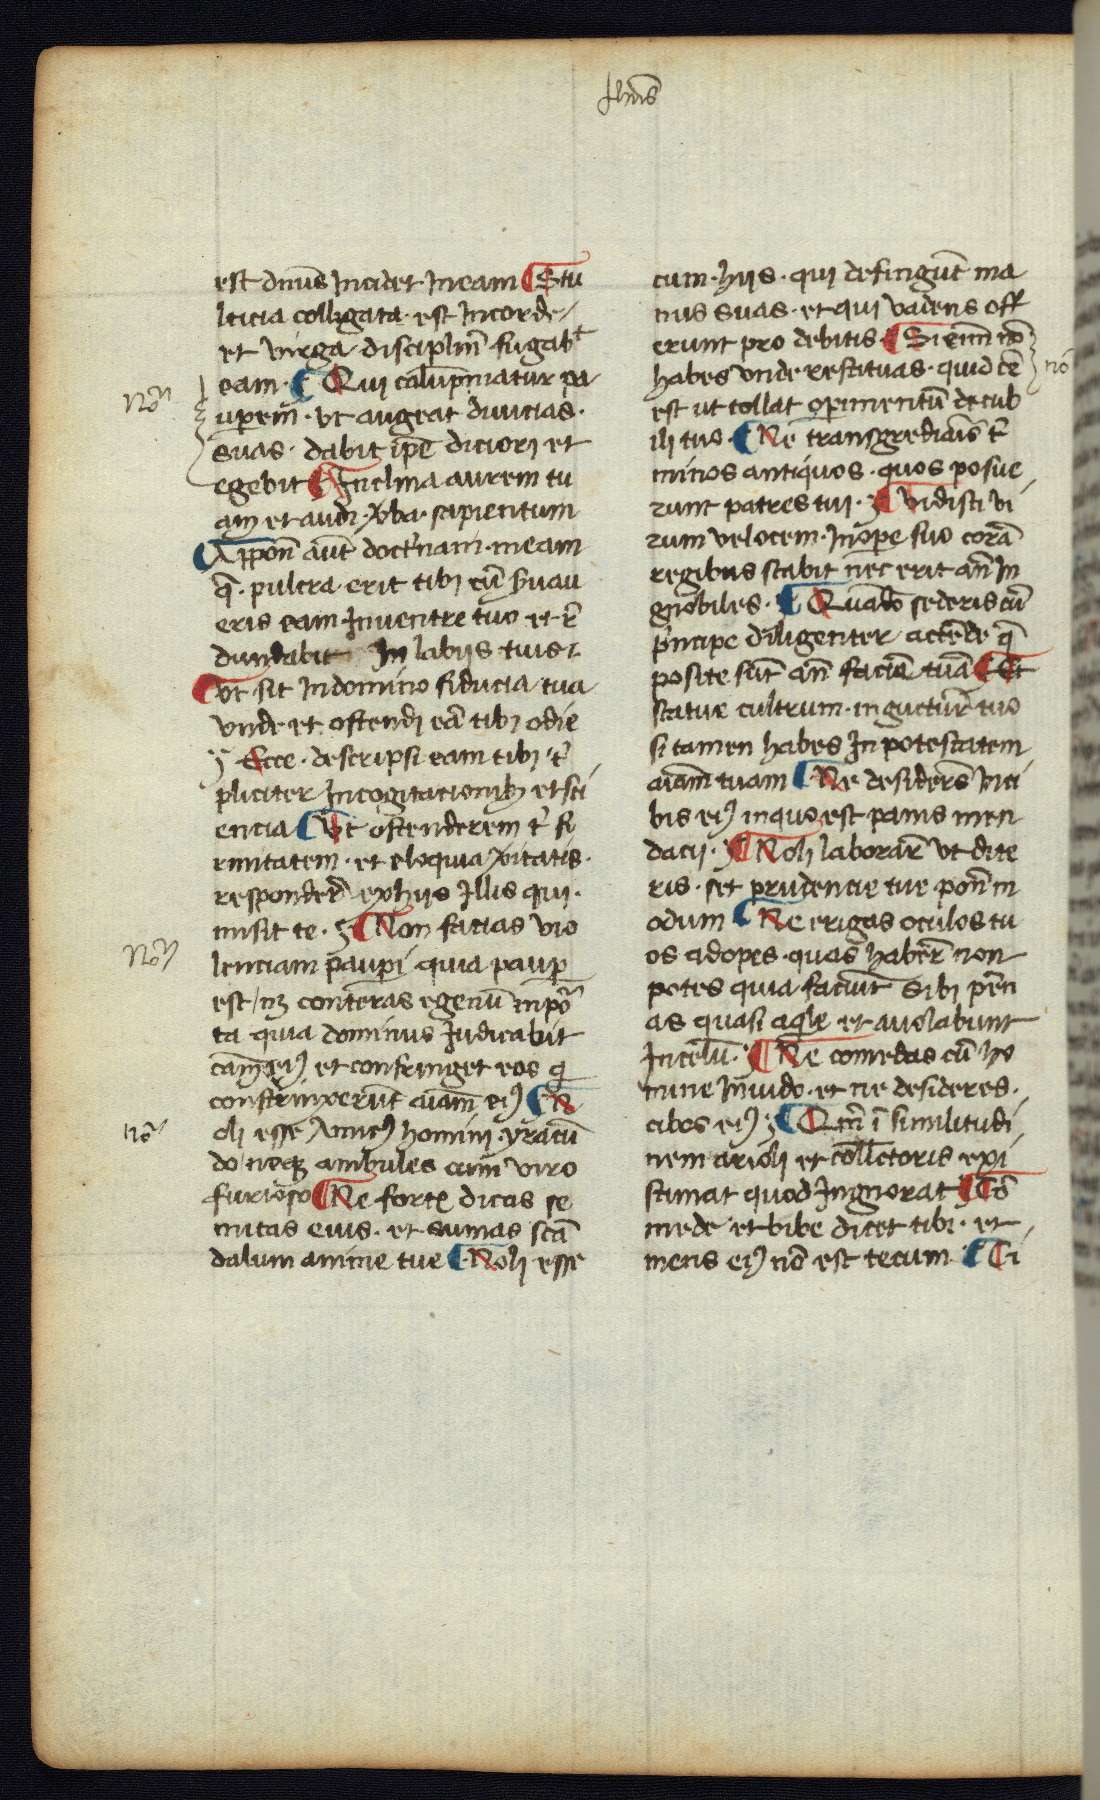 est dnūs Incidet In eam ¶ Stu
lticia colligata · est In corde
et virga disciplin̄ fugab̄t
eam · ¶ Qui calūpniatur pa
uperem · vt augeat diuicias ·
suas · dabit ip̄e diciori et
egebit ¶ Inclina aurem tu
am et audi · v̄ba · sapientum
¶ Appon̄ aūt doct'nam · meam
q̄ · pulcra · erit tibi cū suau
eris eam In uentre tuo et r̄
dundabit In labijs tuis
¶ vt · sit In domino fiducia tua
vnde et ostendi eā tibi odie
Ecce · descripsi eam tibi t'
pliciter In cogitacionibꝫ et sci
encia ¶ Vt ostenderem t' fi
rmitatem · et eloquia v̄itatis ·
respondere ex hiis Illis qui ·
misit te · ¶ Non facias vio
lenciam paup̄i quia paup̄
est / nꝫ conteras egenū in po
ta quia dominus Iudicabit
cām eiꝰ et confringet eos q̄
confrinxerūt aīam eiꝰ ¶ N
oli esse Amicꝰ homini · yracū
do neqꝫ ambules cum viro
furioso ¶ Ne forte dicas se
mitas eius · et sumas scā
dalum anime tue ¶ Noli esse
cum · hijs · qui defingūt ma
nus suas · et qui vadens off
erunt pro debitis · ¶ Si enim nō
habes vnde restituas · quid cē
est ut tollat operimentū de cub
ili tuo · ¶ Ne transgrediaris t'
minos antiquos · quos posue
runt patres tui · ¶ Vidisti vi
rum velocem · In ope suo corā
regibus stabit nec erit ān In
gnobiles · ¶ Quādo sederis cū
p'ncipe diligenter actēde q̄
posite sūt ān faciē tuā ¶ Et
statue cultrum · in gucture tuo
si tamen habes In potestatem
aīam tuam ¶ Ne desideres In ci
bis eiꝰ in quo est panis men
dacij · ¶ Noli laborar̄ vt dite
ris · set prudencie tue pon̄ m
odum ¶ Ne erigas oculos tu
os ad opes · quas haber̄ non
potes quia faciūt sibi pēn
as quasi aq̄le et auolabunt
In celū · ¶ Ne comedas cū ho
mine Inuido · et ne desideres ·
cibos eiꝰ ¶ Qm̄ ī similitudi
nem arioli et cōllectoris exi
stimat quod Ingnorat ¶ Cō
mede et bibe dicet tibi · et
mens eiꝰ nō est tecum · ¶ Ci